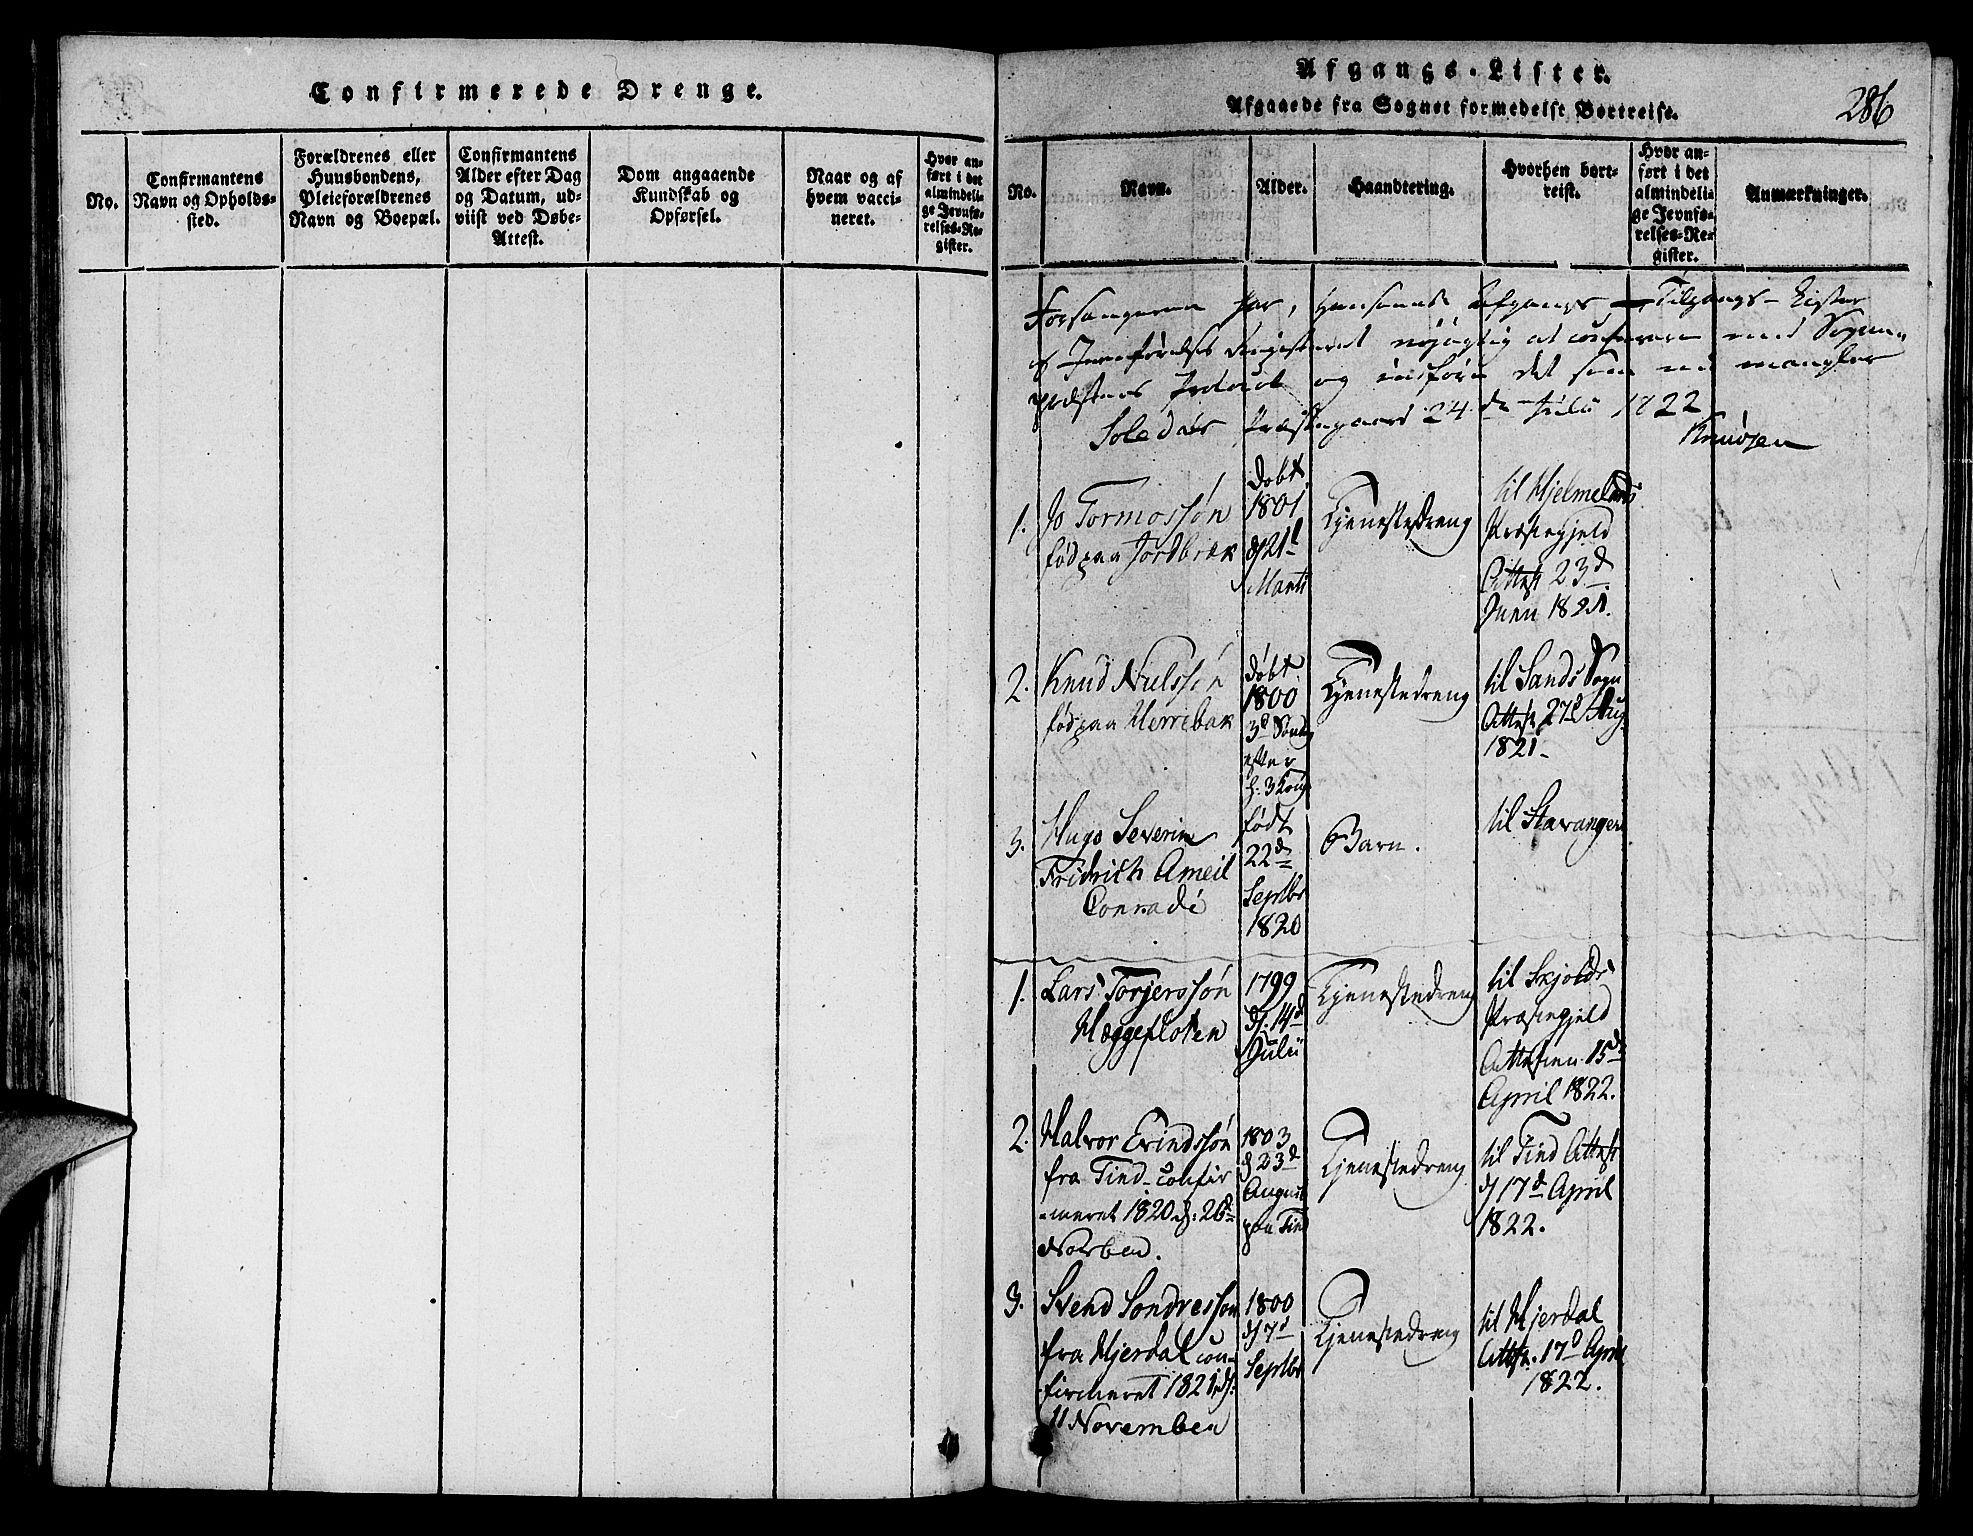 Confirmerede Drenge.
No.
Confirmantens
Navn og Opholds-
sted.
Forældrenes eller
Huusbondens,
Pleieforældrenes
Navn og Boepæl.
Confirmantens
Alder efter Dag
og Datum, ud-
viist ved Døbe-
Attest.
Dom angaaende
Kundskab og
Opførsel.
Naar og af
hvem vacci-
neret.
Hvor an-
ført i det
almindeli-
ge Jevnfø-
relses-Re-
gister.
Afgangs-Lister.
Afgaaede fra Sognet formedelst Bortreise.
286
No.
Navn.
Alder.
Haandtering.
Hvorhen bort-
reist.
Hvor an-
ført i det
almindeli-
ge Jevnfø-
relses-Re-
gister.
Anmærkninger.
Forsangeren har, Afgangs, Tilgangs-Lister
Jevnførelses Registeret nøjagtig at conferere med Sogne-
præstens Protocol og indføre det som nu mangler
Soledals Præstegaard 24de Julii 1822
Knudsen
1.
Jo Tormossøn
fød paa Jordbrek
døbt
1801
d 21d
Marti
Tjenestedreng
til Hjelmelands
Præstegjeld
Attest 23d
Juni 1821.
2.
Knud Nielssøn
fød paa Herrebak
døbt
1800
3d Søndag
efter
h. 3 Kong
Tjenestedreng
til Sands Sogn
Attest 27d Aug
1821-
3.
Hugo Severin
Fridrich Ameil
Conradi
født
22de
Septbr
1820
Barn.
til Stavanger
1.
Lars Torjerssøn
Hæggefloten
1799
d. 14d
Julii
Tjenestedreng
til Skjolds
Præstegjeld
Attesten 15d
April 1822.
2.
Halvor Evindssøn
fra Tind confir
-meret 1820 d: 26d
Novber.
1803
d 23d
August
paa Tind
Tjenestedreng
til Tind Attest
d 17d April
1822.
3.
Svend Sondressøn
fra Hjerdal con-
firmeret 1821 d:
11 November
1800
d 7d
Septbr
Tjenestedreng
til Hjerdal
Attest. 17d April
1822.